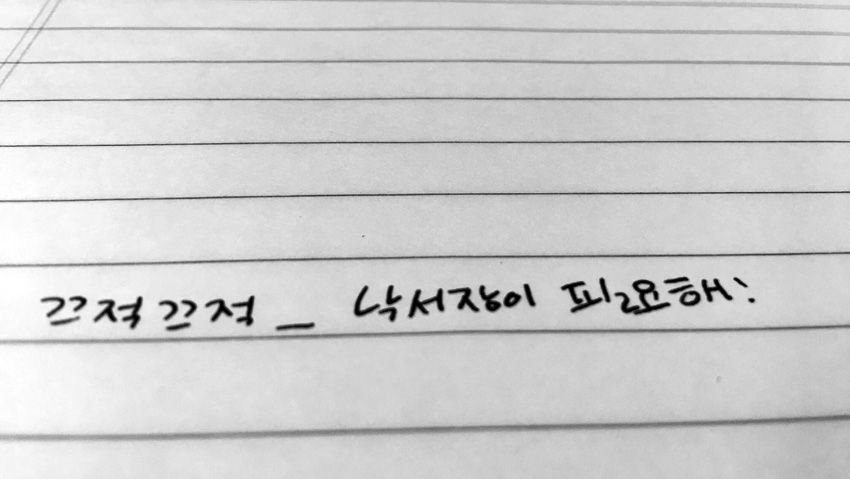 끄적끄적_ 낙서장이 필요해: